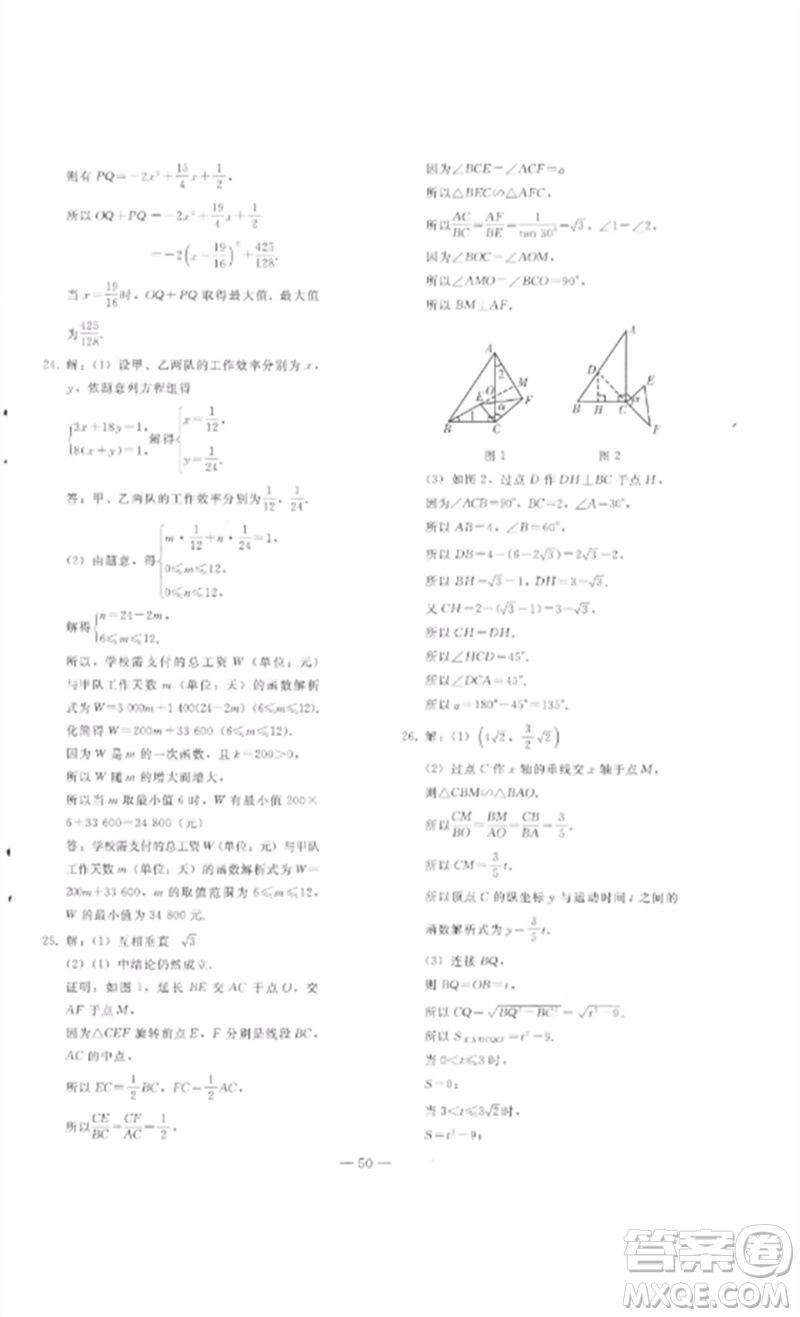 则有 PQ=-2x²+15/4 x+1/2,
所以 OQ+PQ=-2x²+19/4 x+1/2
=-2(x-19/16)²+425/128.
当 x=19/16时, OQ+PQ 取得最大值, 最大值
为425/128.
24. 解:(1) 设甲、乙两队的工作效率分别为 x,
y, 依题意列方程组得
{3x+18y=1, 8(x+y)=1, 解得{x=1/12, y=1/24.
答:甲、乙两队的工作效率分别为1/12, 1/24.
(2) 由题意, 得{m·1/12+n·1/24=1, 0≤m≤12, 0≤n≤12,
解得{n=24-2m, 6≤m≤12.
所以, 学校需支付的总工资 W (单位:元)
与甲队工作天数 m (单位:天) 的函数解析
式为 W=3 000m+1 400(24-2m) (6≤m≤12).
化简得 W=200m+33 600 (6≤m≤12).
因为 W 是 m 的一次函数, 且 k=200>0,
所以 W 随 m 的增大而增大,
所以当 m 取最小值 6 时, W 有最小值 200×
6+33 600=34 800 (元)
答:学校需支付的总工资 W 与甲队工
作天数 m (单位:天) 的函数解析式为 W=
200m+33 600, m 的取值范围为 6≤m≤12,
W 的最小值为 34 800 元.
25. 解:(1) 互相垂直 √3
(2) (1) 中结论仍然成立.
证明:如图 1, 延长 BE 交 AC 于点 O, 交
AF 于点 M,
因为△CEF 旋转前点 E, F 分别是线段 BC,
AC 的中点,
所以 EC=1/2 BC, FC=1/2 AC,
所以CE/BC=CF/AC=1/2,
因为∠BCE=∠ACF=α
所以△BEC∽△AFC,
所以AC/BC=AF/BE=1/tan 30°=√3, ∠1=∠2,
因为∠BOC=∠AOM,
所以∠AMO=∠BCO=90°,
所以 BM⊥AF.
A 2 M O E F α B 1 C
A D E B H C α F
图 1 图 2
(3) 如图 2, 过点 D 作 DH⊥BC 于点 H,
因为∠ACB=90°, BC=2, ∠A=30°,
所以 AB=4, ∠B=60°,
所以 DB=4-(6-2√3)=2√3-2,
所以 BH=√3-1, DH=3-√3,
又 CH=2-(√3-1)=3-√3,
所以 CH=DH,
所以∠HCD=45°,
所以∠DCA=45°,
所以 α=180°-45°=135°.
26. 解:(1) (4√2, 3/2 √2)
(2) 过点 C 作 x 轴的垂线交 x 轴于点 M,
则△CBM∽△BAO,
所以CM/BO=BM/AO=CB/BA=3/5,
所以 CM=3/5 t,
所以顶点 C 的纵坐标 y 与运动时间 t 之间的
函数解析式为 y=3/5 t.
(3) 连接 BQ,
则 BQ=OB=t,
所以 CQ=√(BQ²-BC²)=√(t²-9),
=t²-9,
当 0<t≤3 时,
S=0;
当 3<t≤3√2时,
S=t²-9;
— 50 —
答案卷
MXQE.COM